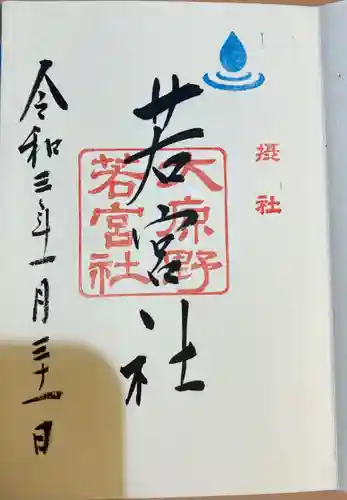 摂社
若宮社
大原野
若宮社
令和三年一月三十一日